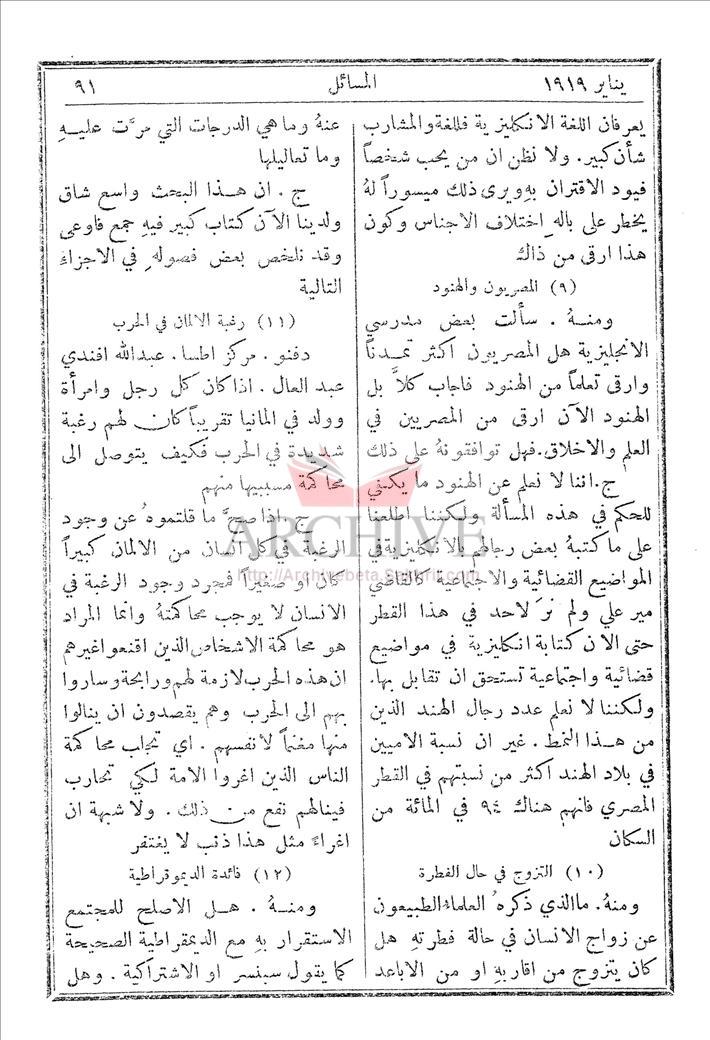 يناير ١٩١٩
المسائل
٩١
يعرفان اللغة الانكليزية فللغة والمشارب
شأن كبير . ولا نظن ان من يحب شخصاً
فيود الاقتران بهِ ويرى ذلك ميسوراً لهُ
يخطر على بالهِ اختلاف الاجناس وكون
هذا ارقى من ذاك
(٩) المصريون والهنود
ومنـهُ . سألت بعض مدرسي
الانجليزية هل المصريون اكثر تمـدناً
وارقى تعلماً من الهنود فاجاب كلاَّ بل
الهنود الآن ارقى من المصريين في
العلم والاخلاق.فهل توافقونهُ على ذلك
ج.اننا لا نعلم عن الهنود ما يكفي
للحكم في هذه المسألة ولكننا اطلعنا
على ما كتبهُ بعض رجالهم بالانكليزية في
المواضيع القضائية والاجتماعية كالقاضي
مير علي ولم نرَ لاحد في هذا القطر
حتى الان كتابة انكليزية في مواضيع
قضائية واجتماعية تستحق ان تقابل بها.
ولكننا لا نعلم عدد رجال الهند الذين
من هـذا النمط . غير ان نسبة الاميين
في بلاد الهند اكثر من نسبتهم في القطر
المصري فانهم هناك ٩٤ في المائة من
السكان
(١٠) التزوج في حال الفطرة
ومنهُ. ما الذي ذكرهُ العلماء الطبيعيون
عن زواج الانسان في حالة فطرتهِ هل
كان يتزوج من اقاربهِ او من الاباعد
عنهُ وما هي الدرجات التي مرَّت عليـهِ
وما تعاليلها
ج . ان هـذا البحث واسع شاق
ولدينا الآن كتاب كبير فيهِ جمع فاوعى
وقد نلخص بعض فصولهِ في الاجزاء
التالية
(١١) رغبة الالمان في الحرب
دفنو . مركز اطسا . عبدالله افندي
عبد العال . اذا كان كل رجل وامرأة
وولد في المانيا تقريباً كان لهم رغبة
شديدة في الحرب فكيف يتوصل الى
محاكمة مسببيها منهم
ج . اذا صحَّ ما قلتموهُ عن وجود
الرغبة في كل انسان من الالمان كبيراً
كان او صغيراً فمجرد وجود الرغبة في
الانسان لا يوجب محاكمتهُ وانما المراد
هو محاكمة الاشخاص الذين اقنعوا غيرهم
ان هذه الحرب لازمة لهم ورابحة وساروا
بهم الى الحرب وهم يقصدون ان ينالوا
منها مغنماً لانفسهم . اي تجب محاكمة
الناس الذين اغروا الامة لكي تحارب
فينالهم نفع من ذلك . ولا شبهة ان
اغراءً مثل هذا ذنب لا يغتفر
(١٢) فائدة الديموقراطية
ومنـهُ . هـل الاصلح للمجتمع
الاستقرار بهِ مع الديمقراطية الصحيحة
كما يقول سبنسر او الاشتراكية . وهل
ARCHIVE
http://Archivebeta.Sakhrit.com